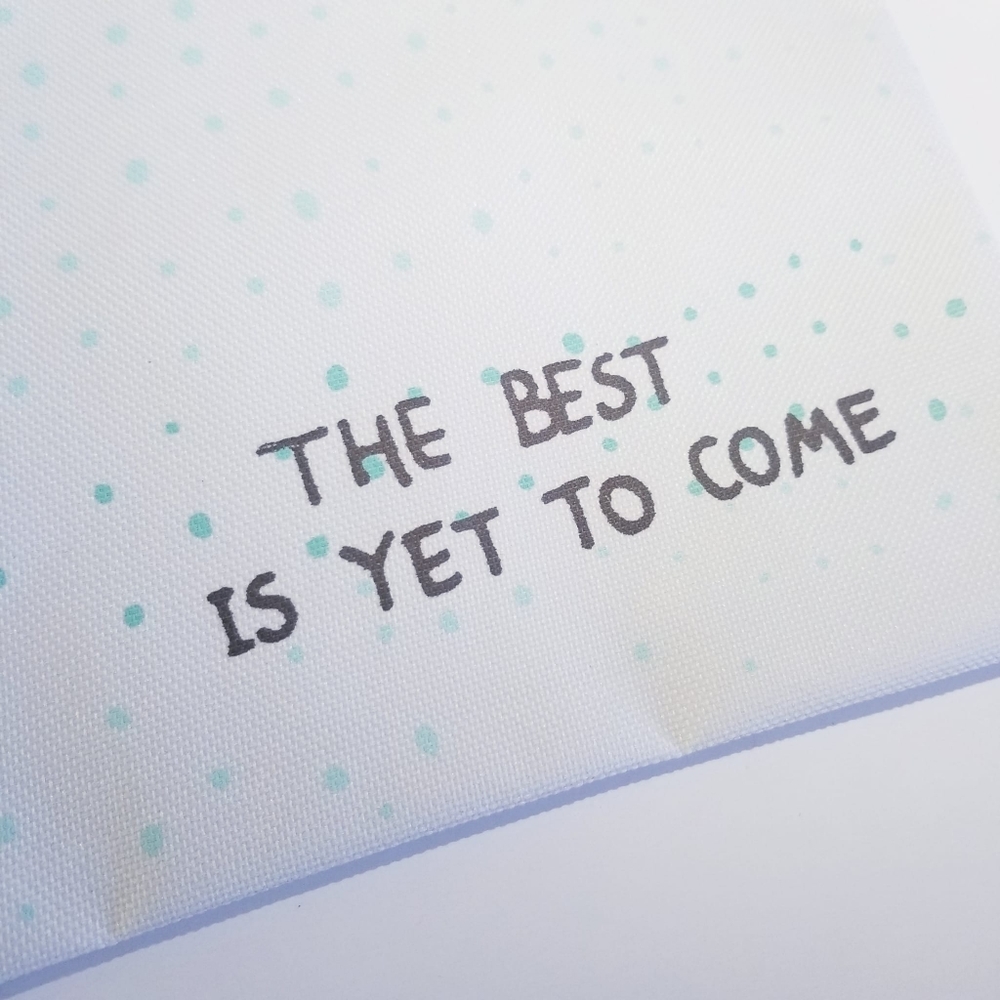 THE BEST
IS YET TO COME